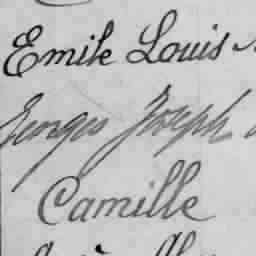 Emile Louis
Georges Joseph
Camille